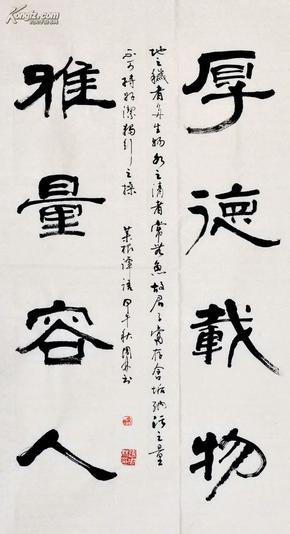 厚德載物
地之穢者多生物水之清者常無魚故君子當存含垢納污之量
不可持好潔獨行之操
菜根譚語 甲午秋
雅量容人
Kongfz.com